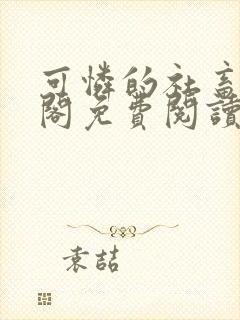 可憐的社畜
閣免費閱讀
袁喆